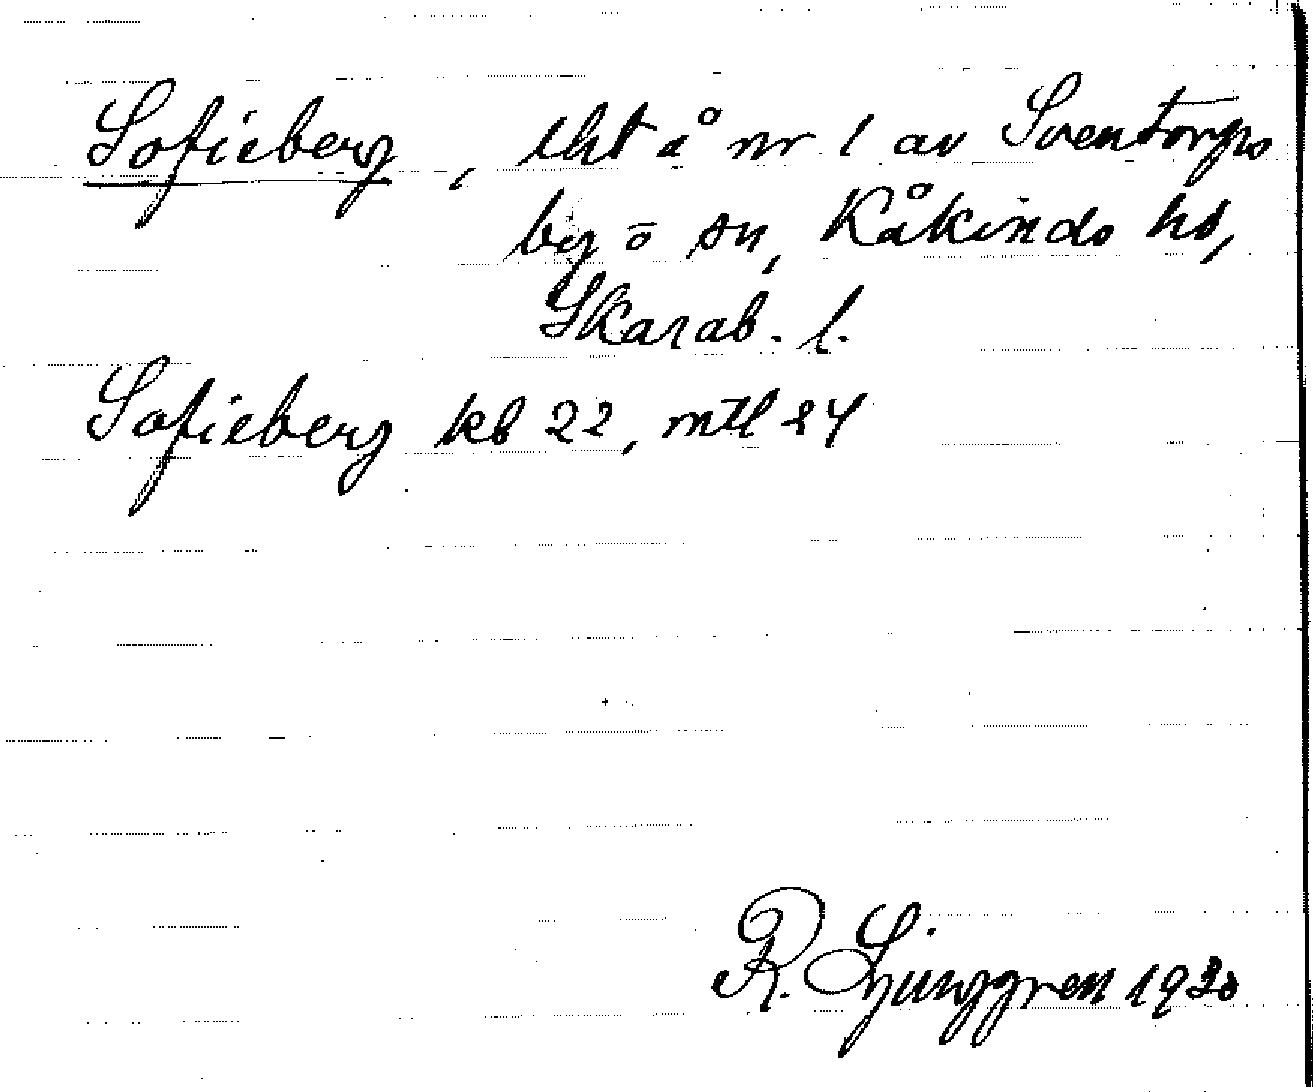 Sofieberg, lht å nr 1 av Sventorps
by o sn, Kåkinds hd,
Skarab. l.
Sofieberg kb 22, mtl 24
R. Ljunggren 1930